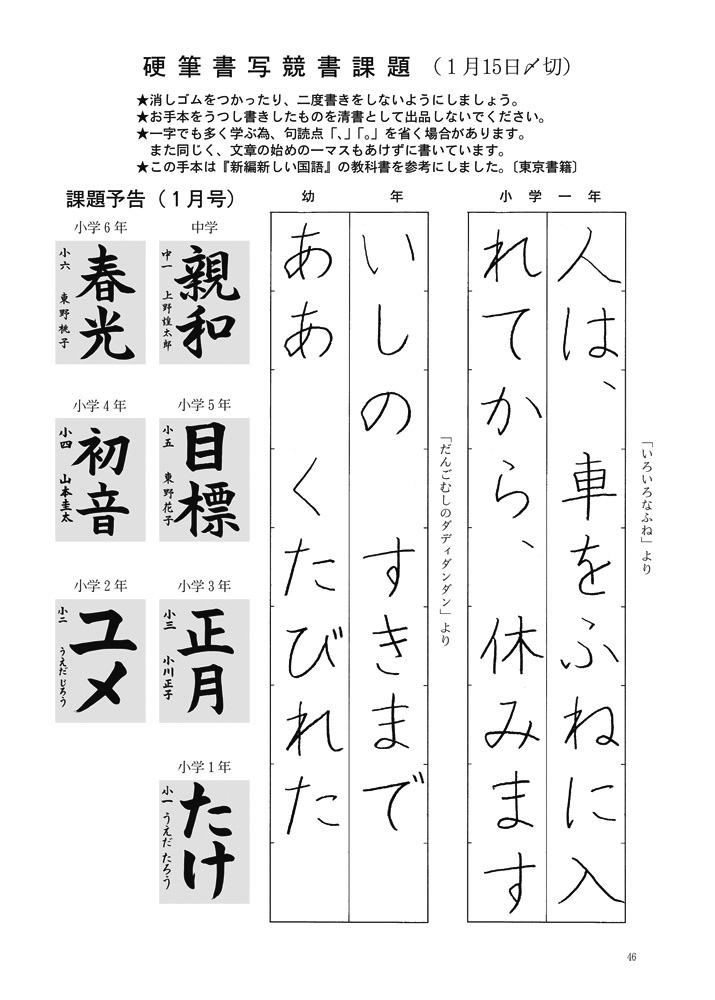 硬筆書写競書課題（１月15日〆切）
★消しゴムをつかったり、二度書きをしないようにしましょう。
★お手本をうつし書きしたものを清書として出品しないでください。
★一字でも多く学ぶ為、句読点「、」「。」を省く場合があります。
また同じく、文章の始めの一マスもあけずに書いています。
★この手本は『新編新しい国語』の教科書を参考にしました。〔東京書籍〕
小学一年
「いろいろなふね」より
人は、 車をふねに入
れてから、 休みます
幼年
「だんごむしのダディダンダン」より
いしの すきまで
ああ くたびれた
課題予告（１月号）
中学
親和
中一 上野煌太郎
小学６年
春光
小六 東野桃子
小学５年
目標
小五 東野花子
小学４年
初音
小四 山本圭太
小学３年
正月
小三 小川正子
小学２年
ユメ
小二 うえだじろう
小学１年
たけ
小一 うえだ たろう
46